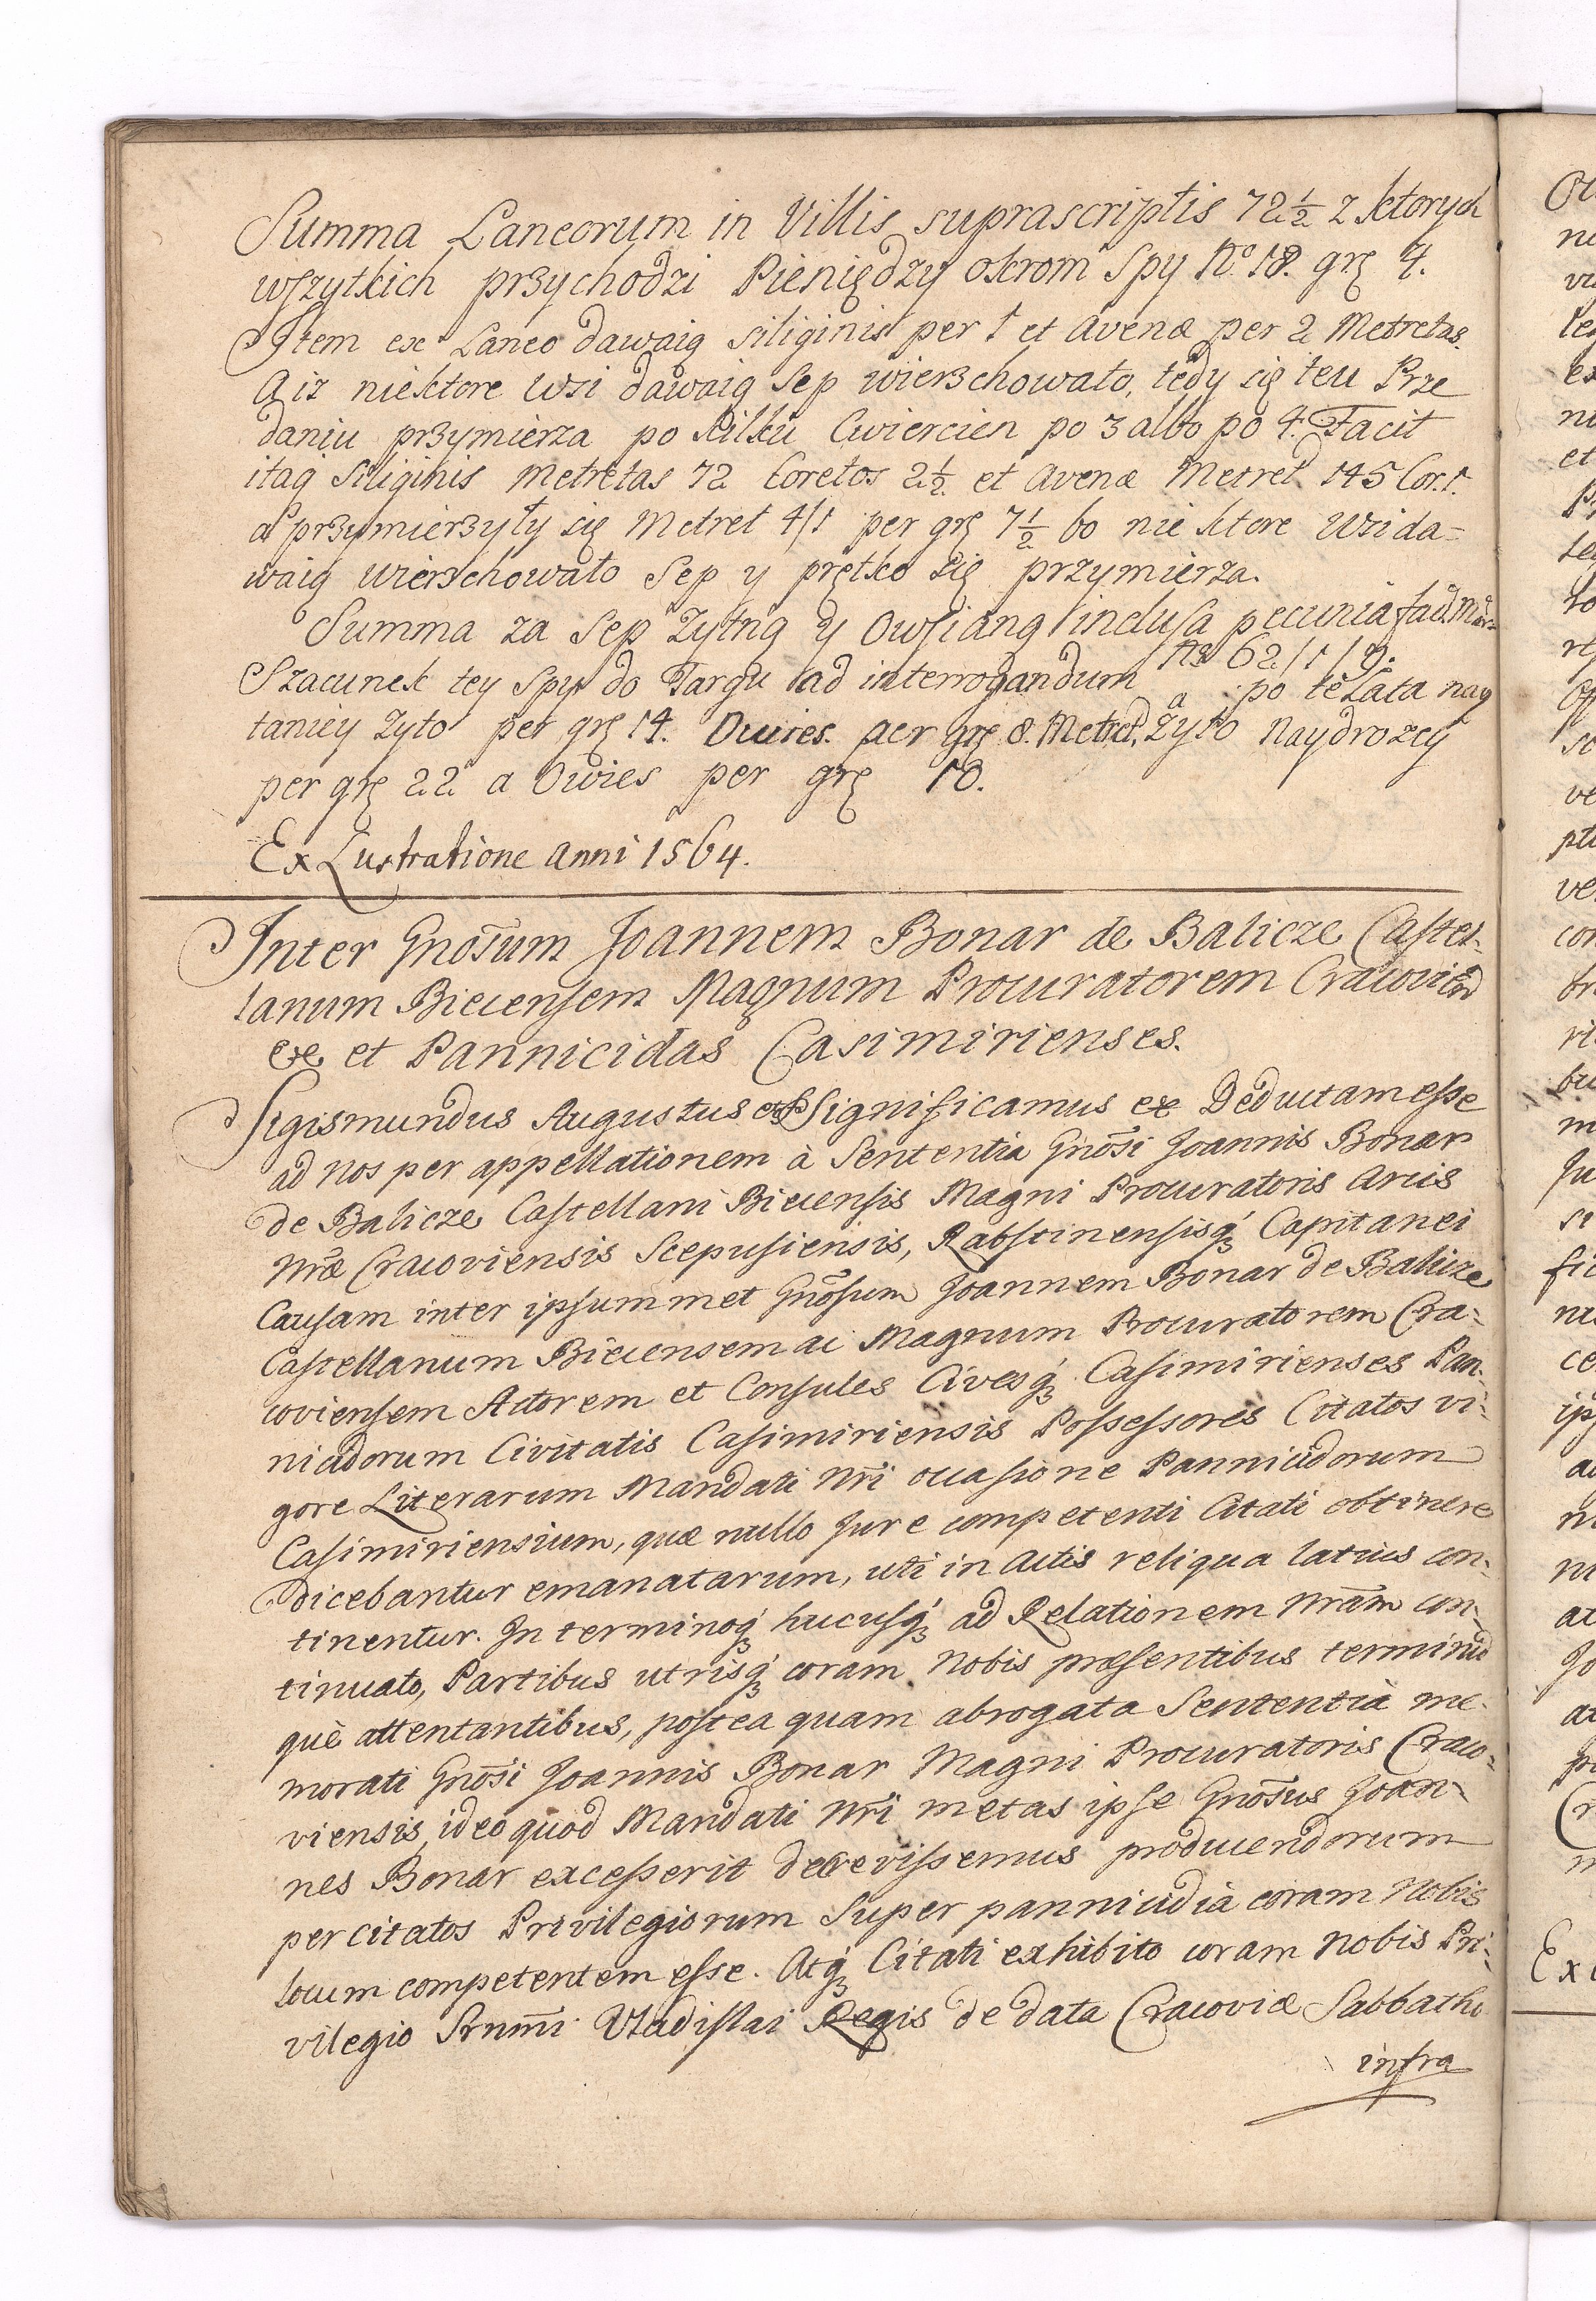 Summa Laneorum in Villis suprascriptis 72½ z ktorych
wszytkich przychodzi Pieniędzy okrom Spy No. 18. grę 4.
Item ex Laneo dawaią siliginis per 1 et Avenæ per 2 Metretas.
A iż niektore wsi dawaią Sep wierzchowato, tedy się teu Prze
daniu przymierza po kilku Cwiercien po 3 albo po 4. Facit
itaq Siliginis Metretas 72 Coretos 2½. et Avenæ Metret 145 Cor. 1.
a przymierzyły się Metret 4/1 per grę 7½ bo nie ktore wsi da=
waią wierzchowato Sep y prętko się przymierza.
Summa za Sep Zytną y Owsianą inclusa pecunia fad. Mar=
No 62/1/9.
Szacunek tey Spy do Targu ad interrogandum po te Lata nay
taniey Zyto per grę 14. Owies. per grę 8. Metret, a Zyto Naydrozey
per grę 22 a Owies per grę 10.
Ex Lustratione Anni 1564.
Inter Gnosum Joannem Bonar de Balicze Castel-
lanum Biecensem Magnum Procuratorem Cracovien
ex et Pannicidas Casimirienses.
Sigismundus Augustus etc Significamus ex Deductam esse
ad nos per appellationem à Sententia Gnosi Joannis Bonar
de Balicze Castellani Biecensis Magni Procuratoris Arcis
Nræ Cracoviensis Scepusiensis, Rabstinensisq Capitanei
Causam inter ipsummet Gnosum Joannem Bonar de Balicze
Castellanum Biecensem ac Magnum Procuratorem Cra-
coviensem Actorem et Consules Civesq Casimirienses Pan-
nicidorum Civitatis Casimiriensis Possessores Citatos vi-
gore Literarum Mandati Nri occasione Pannicidorum
Casimiriensium, quæ nullo Jure competenti Citati obtinere
dicebantur emanatarum, uti in Actis reliqua latius con-
tinentur. In terminoq hucusq ad Relationem Nram con-
tinuato, Partibus utrisq coram Nobis præsentibus terminum
què attentantibus, postea quam abrogata Sententià me-
morati Gnosi Joannis Bonar Magni Procuratoris Craco-
viensis, ideo quod Mandati Nri metas ipse Gnosus Joan-
nes Bonar excesserit decrevissemus producendorum
per citatos Privilegiorum Super pannicidia coram Nobis
locum competentem esse. Atq Citati exhibito coram Nobis Pri-
vilegio Srnmi Vladislai Regis de data Cracoviæ Sabbatho
infra